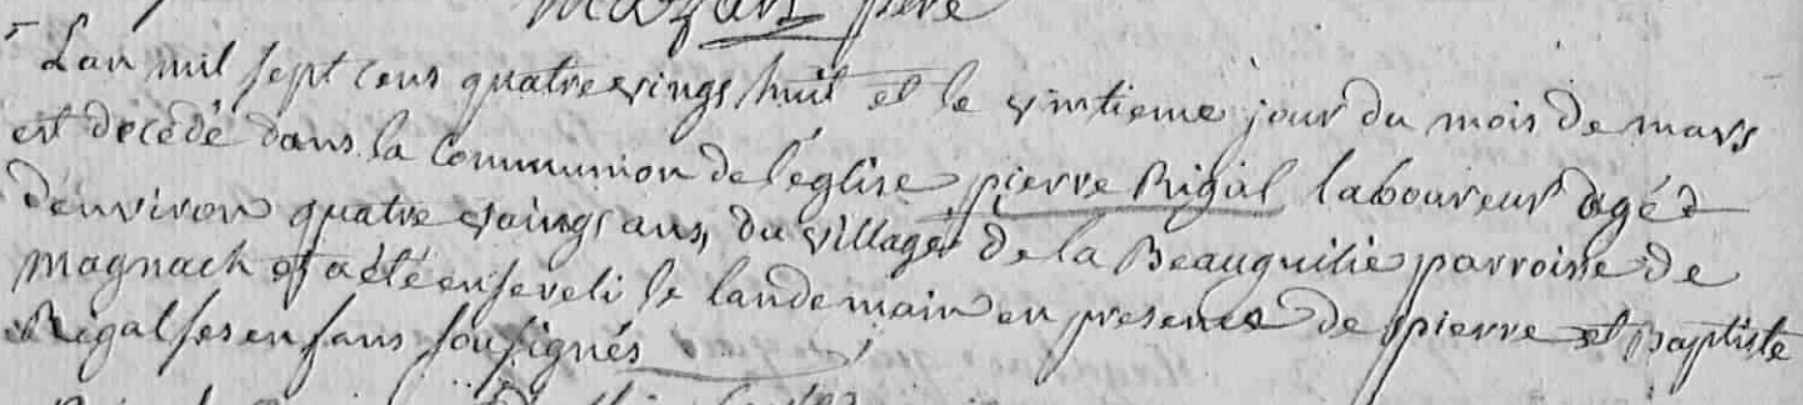 Mazars pere
Lan mil sept cens quatrevings huit et le vintieme jour du mois de mars
est décédé dans la communion de l'église pierre Rigal laboureur agéé
denviron quatre vaings ans, du village de la Beauguilie parroisse de
magnack et a été enseveli le landemain en presence de pierre et baptiste
Rigal ses enfans sousignés